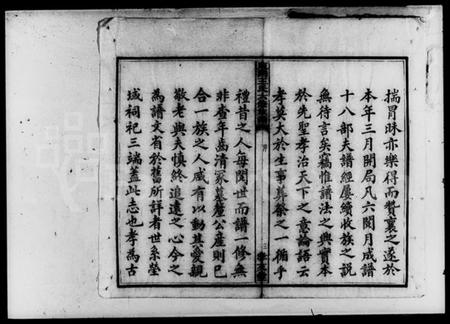 揣冒昧亦樂得而贊襄之遂於
本年三月開局凡六閱月成譜
十八部夫譜經屢續收族之說
無待言矣竊惟譜法之興實本
於先聖孝治天下之意論語云
孝莫大於生事葬祭之一循乎
禮昔之人每閱世而譜一修無
非查年齒清冢墓釐公產則已
合一族之人咸有以動其愛親
敬老與夫慎終追遠之心今之
為譜文有於舊所詳者世系塋
域祠祀三端蓋此志也孝為古